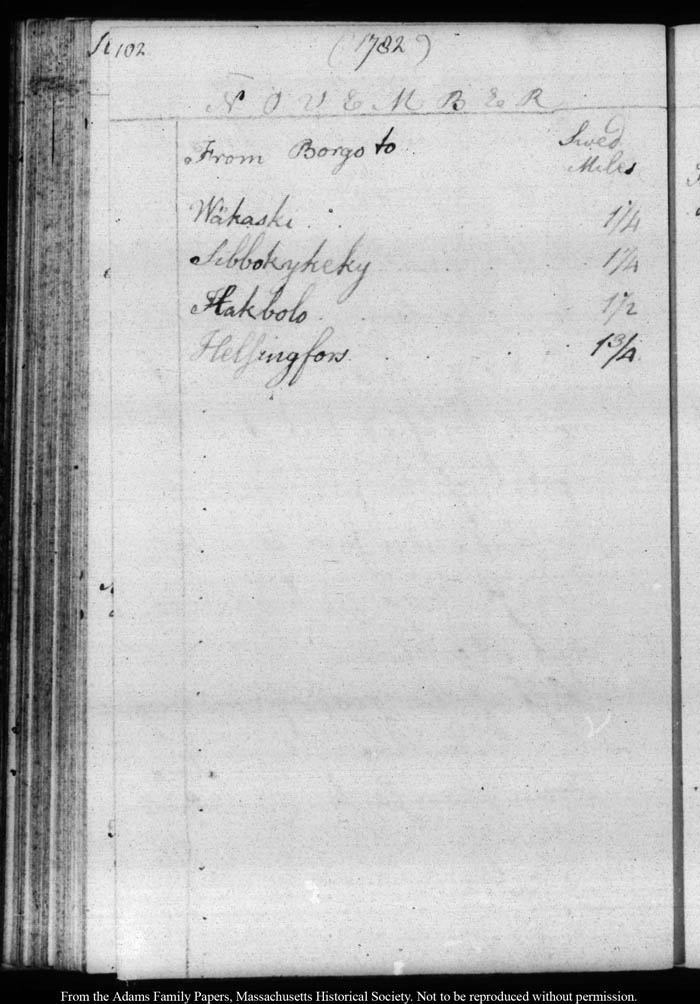 102
(1782)
NOVEMBER
From Borgo to Swed Miles
Wäkaski 1 1/4
Sibbokykeky 1 1/4
Hakbolo 1 1/2
Helsingfors 1 3/4
From the Adams Family Papers, Massachusetts Historical Society. Not to be reproduced without permission.